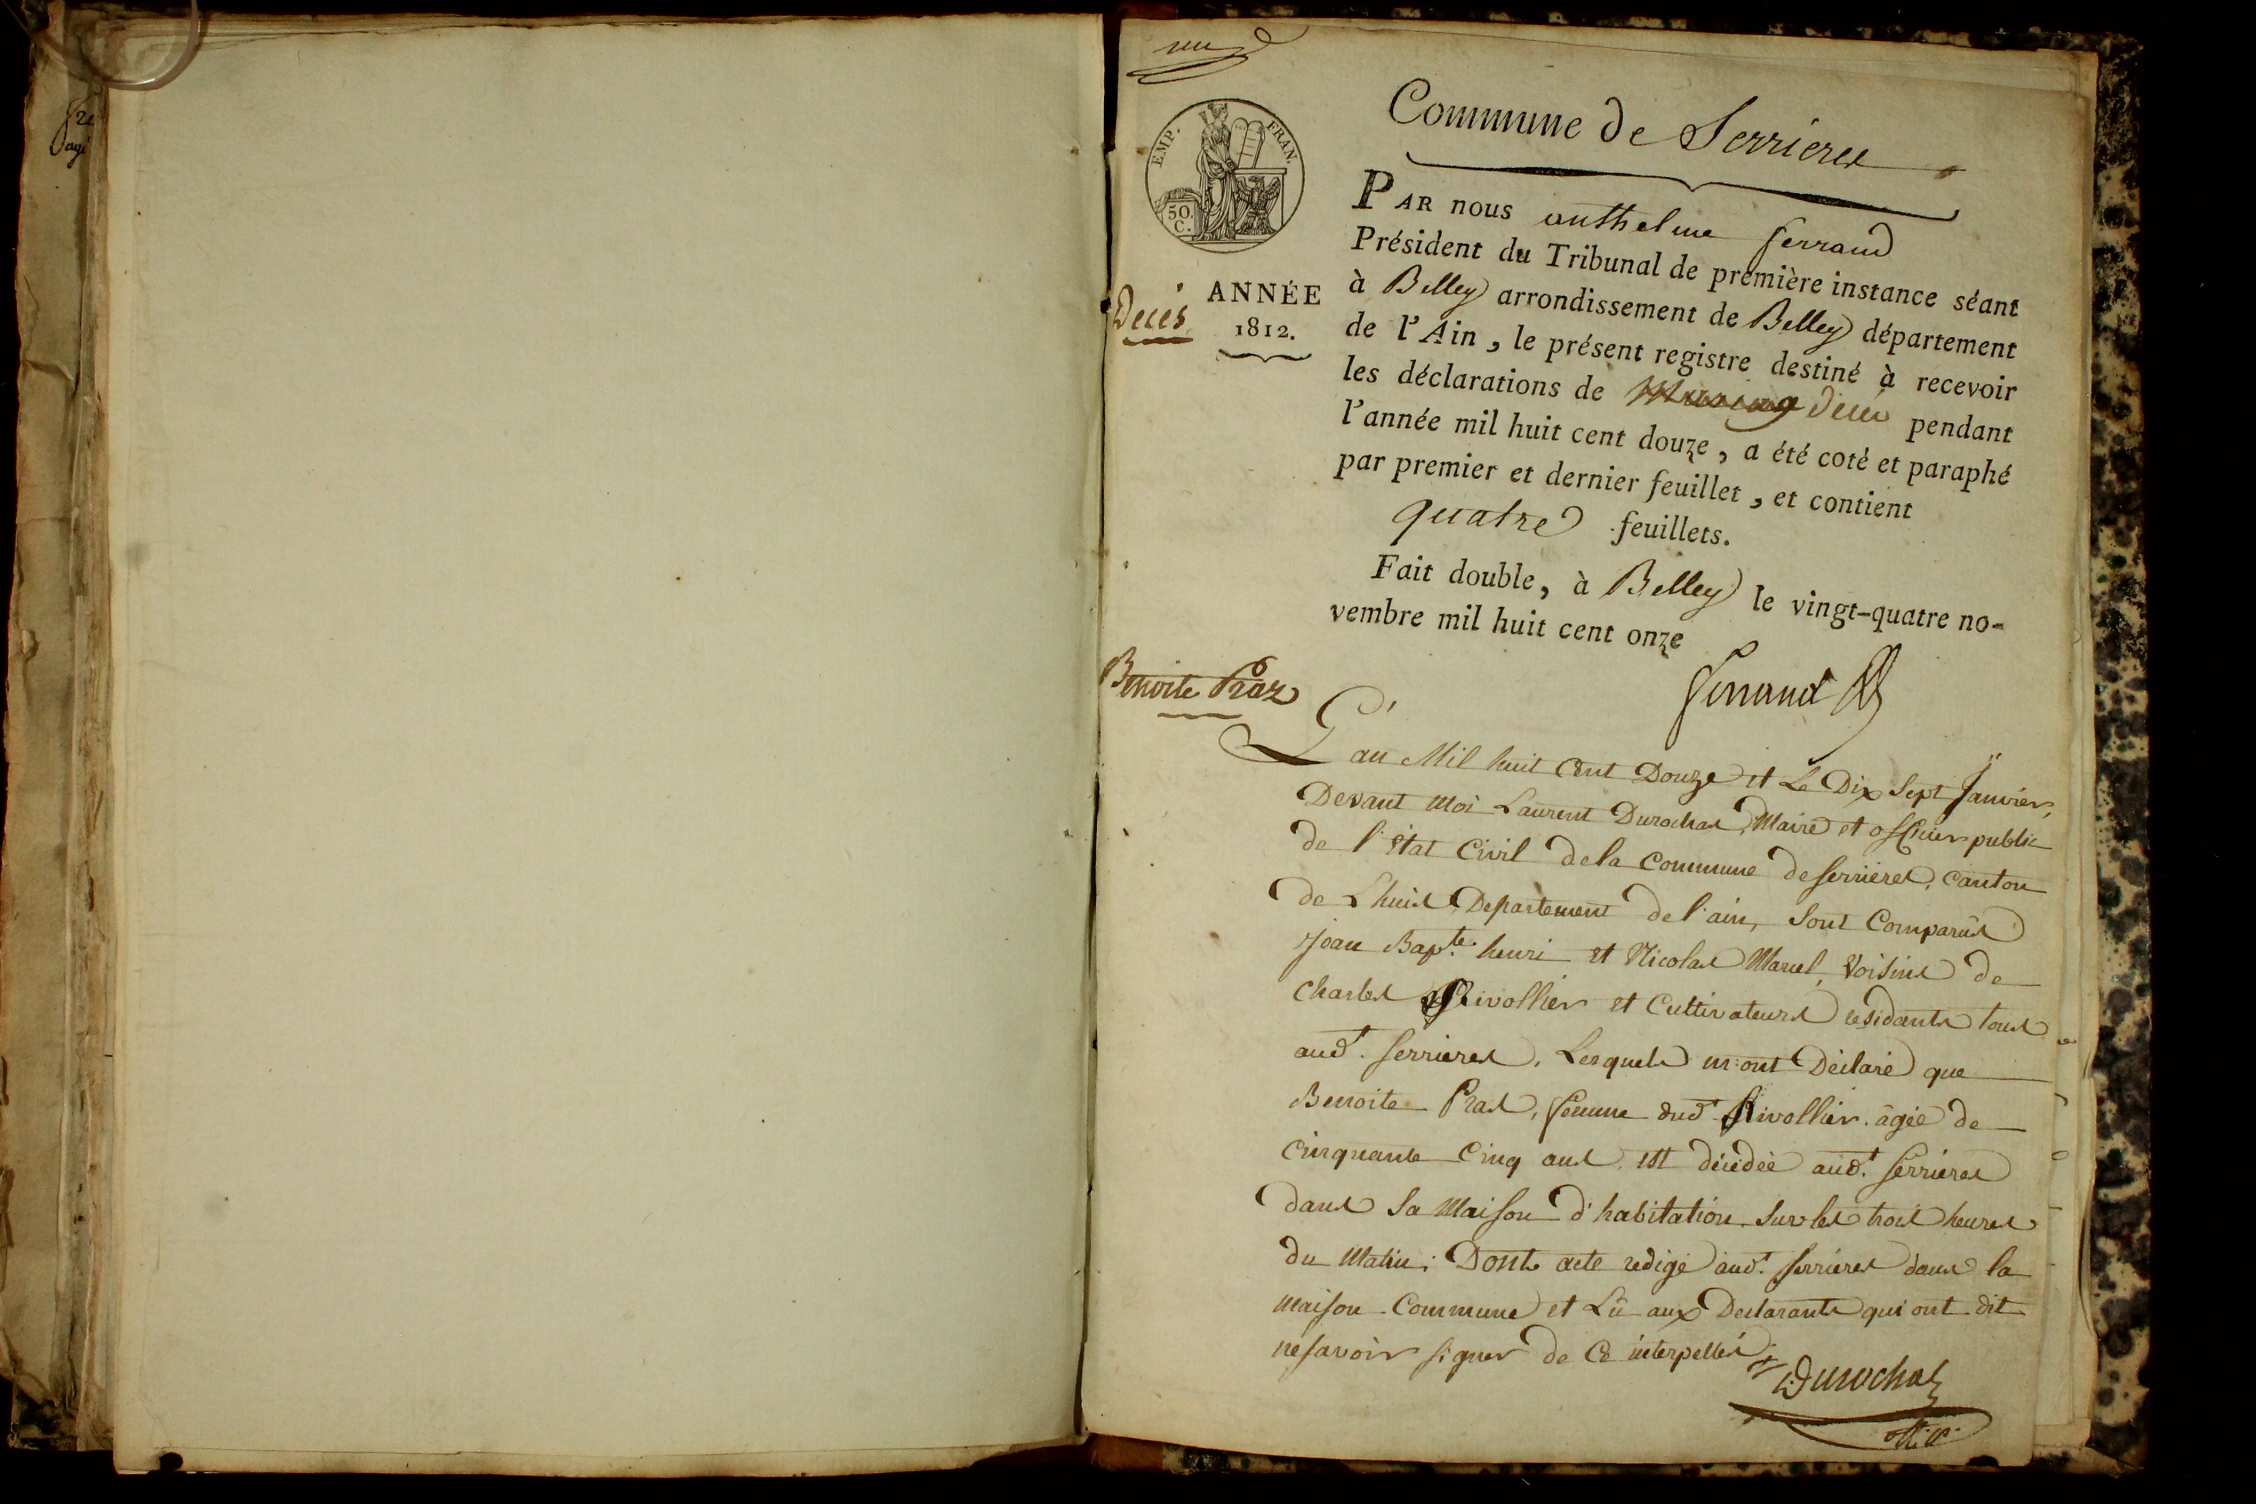 un
Commune de Serrieres
EMP. FRAN.
50.
C.
ANNÉE
1812.
Decés
PAR nous anthelme ferrand
Président du Tribunal de première instance séant
à Belley arrondissement de Belley département
de l'Ain, le présent registre destiné à recevoir
les déclarations de décès pendant
l'année mil huit cent douze, a été coté et paraphé
par premier et dernier feuillet, et contient
quatre feuillets.
Fait double, à Belley le vingt-quatre no-
vembre mil huit cent onze
ferrand
Benoite Praz
L'an Mil huit Cent Douze et Le Dix Sept Janvier,
Devant Moi Laurent Durochat, Maire et officier public
de l'état Civil de la Commune de serrieres, Canton
de Lhuis, Departement de l'ain, Sont Comparus
Jean Bapte. henri et Nicolas Marcel, Voisins de
Charles Rivollier et Cultivateurs residants tous
aud't. serrieres, Lesquels m'ont Déclaré que
Benoite Pras, femme dud't Rivollier âgée de
Cinquante Cinq ans, est décédée aud't. serrieres
dans Sa Maison d'habitation Sur les trois heures
du Matin; Dont acte redigé aud't. serrieres dans la
maison Commune et Lû aux Declarants qui ont dit
ne savoir signer de Ce interpellés
Durochat